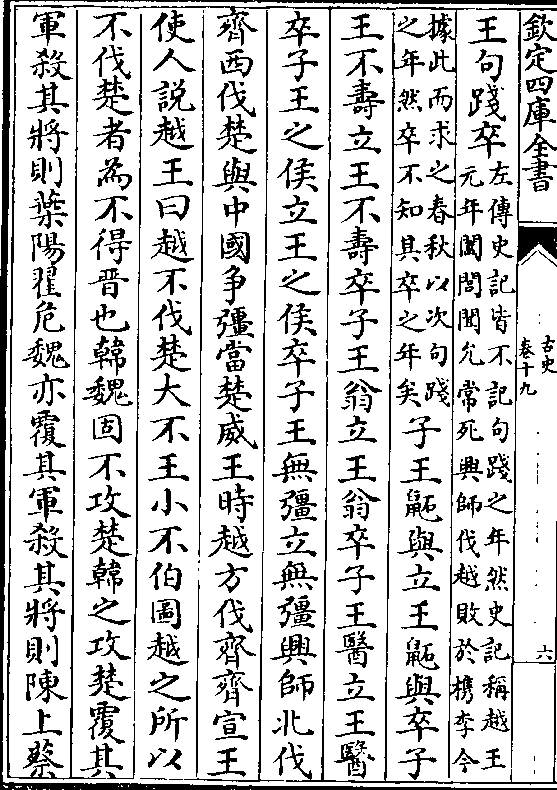 欽定四庫全書
古史
卷十九
六
王句踐卒左傳史記皆不記句踐之年然史記稱越王
元年闔閭聞允常死興師伐越敗於檇李今
據此而求之春秋以次句踐
之年然卒不知其卒之年矣子王鼫與立王鼫與卒子
王不壽立王不壽卒子王翁立王翁卒子王醫立王醫
卒子王之侯立王之侯卒子王無彊立無彊興師北伐
齊西伐楚與中國争彊當楚威王時越方伐齊齊宣王
使人説越王曰越不伐楚大不王小不伯圖越之所以
不伐楚者為不得晋也韓魏固不攻楚韓之攻楚覆其
軍殺其將則葉陽翟危魏亦覆其軍殺其將則陳上蔡